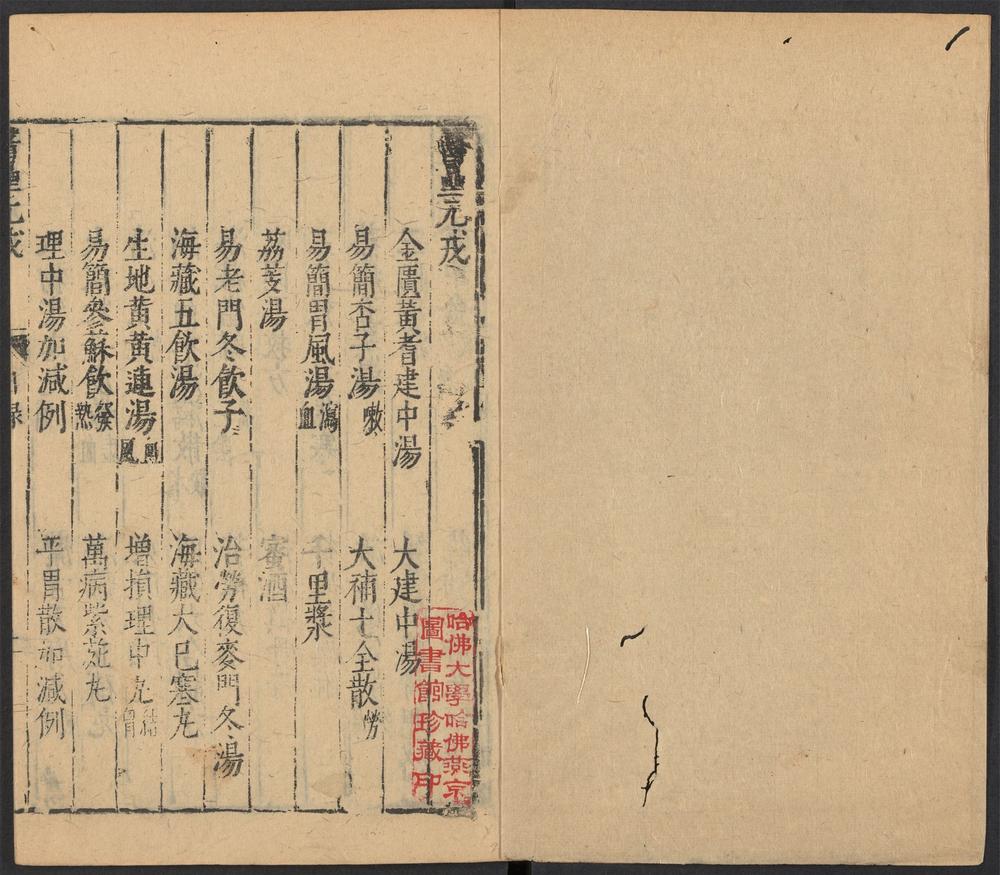 醫壘元戎
金匱黃耆建中湯 大建中湯
易簡杏子湯嗽 大補十全散勞
易簡胃風湯瀉血 千里漿
荔芰湯 蜜酒
易老門冬飲子 治勞復麥門冬湯
海藏五飲湯 海藏大已寒丸
生地黃黃連湯風 增損理中丸結胸
易簡參蘇飲發熱 萬病紫菀丸
理中湯加減例 平胃散加減例
哈佛大學哈佛燕京
圖書館珍藏印